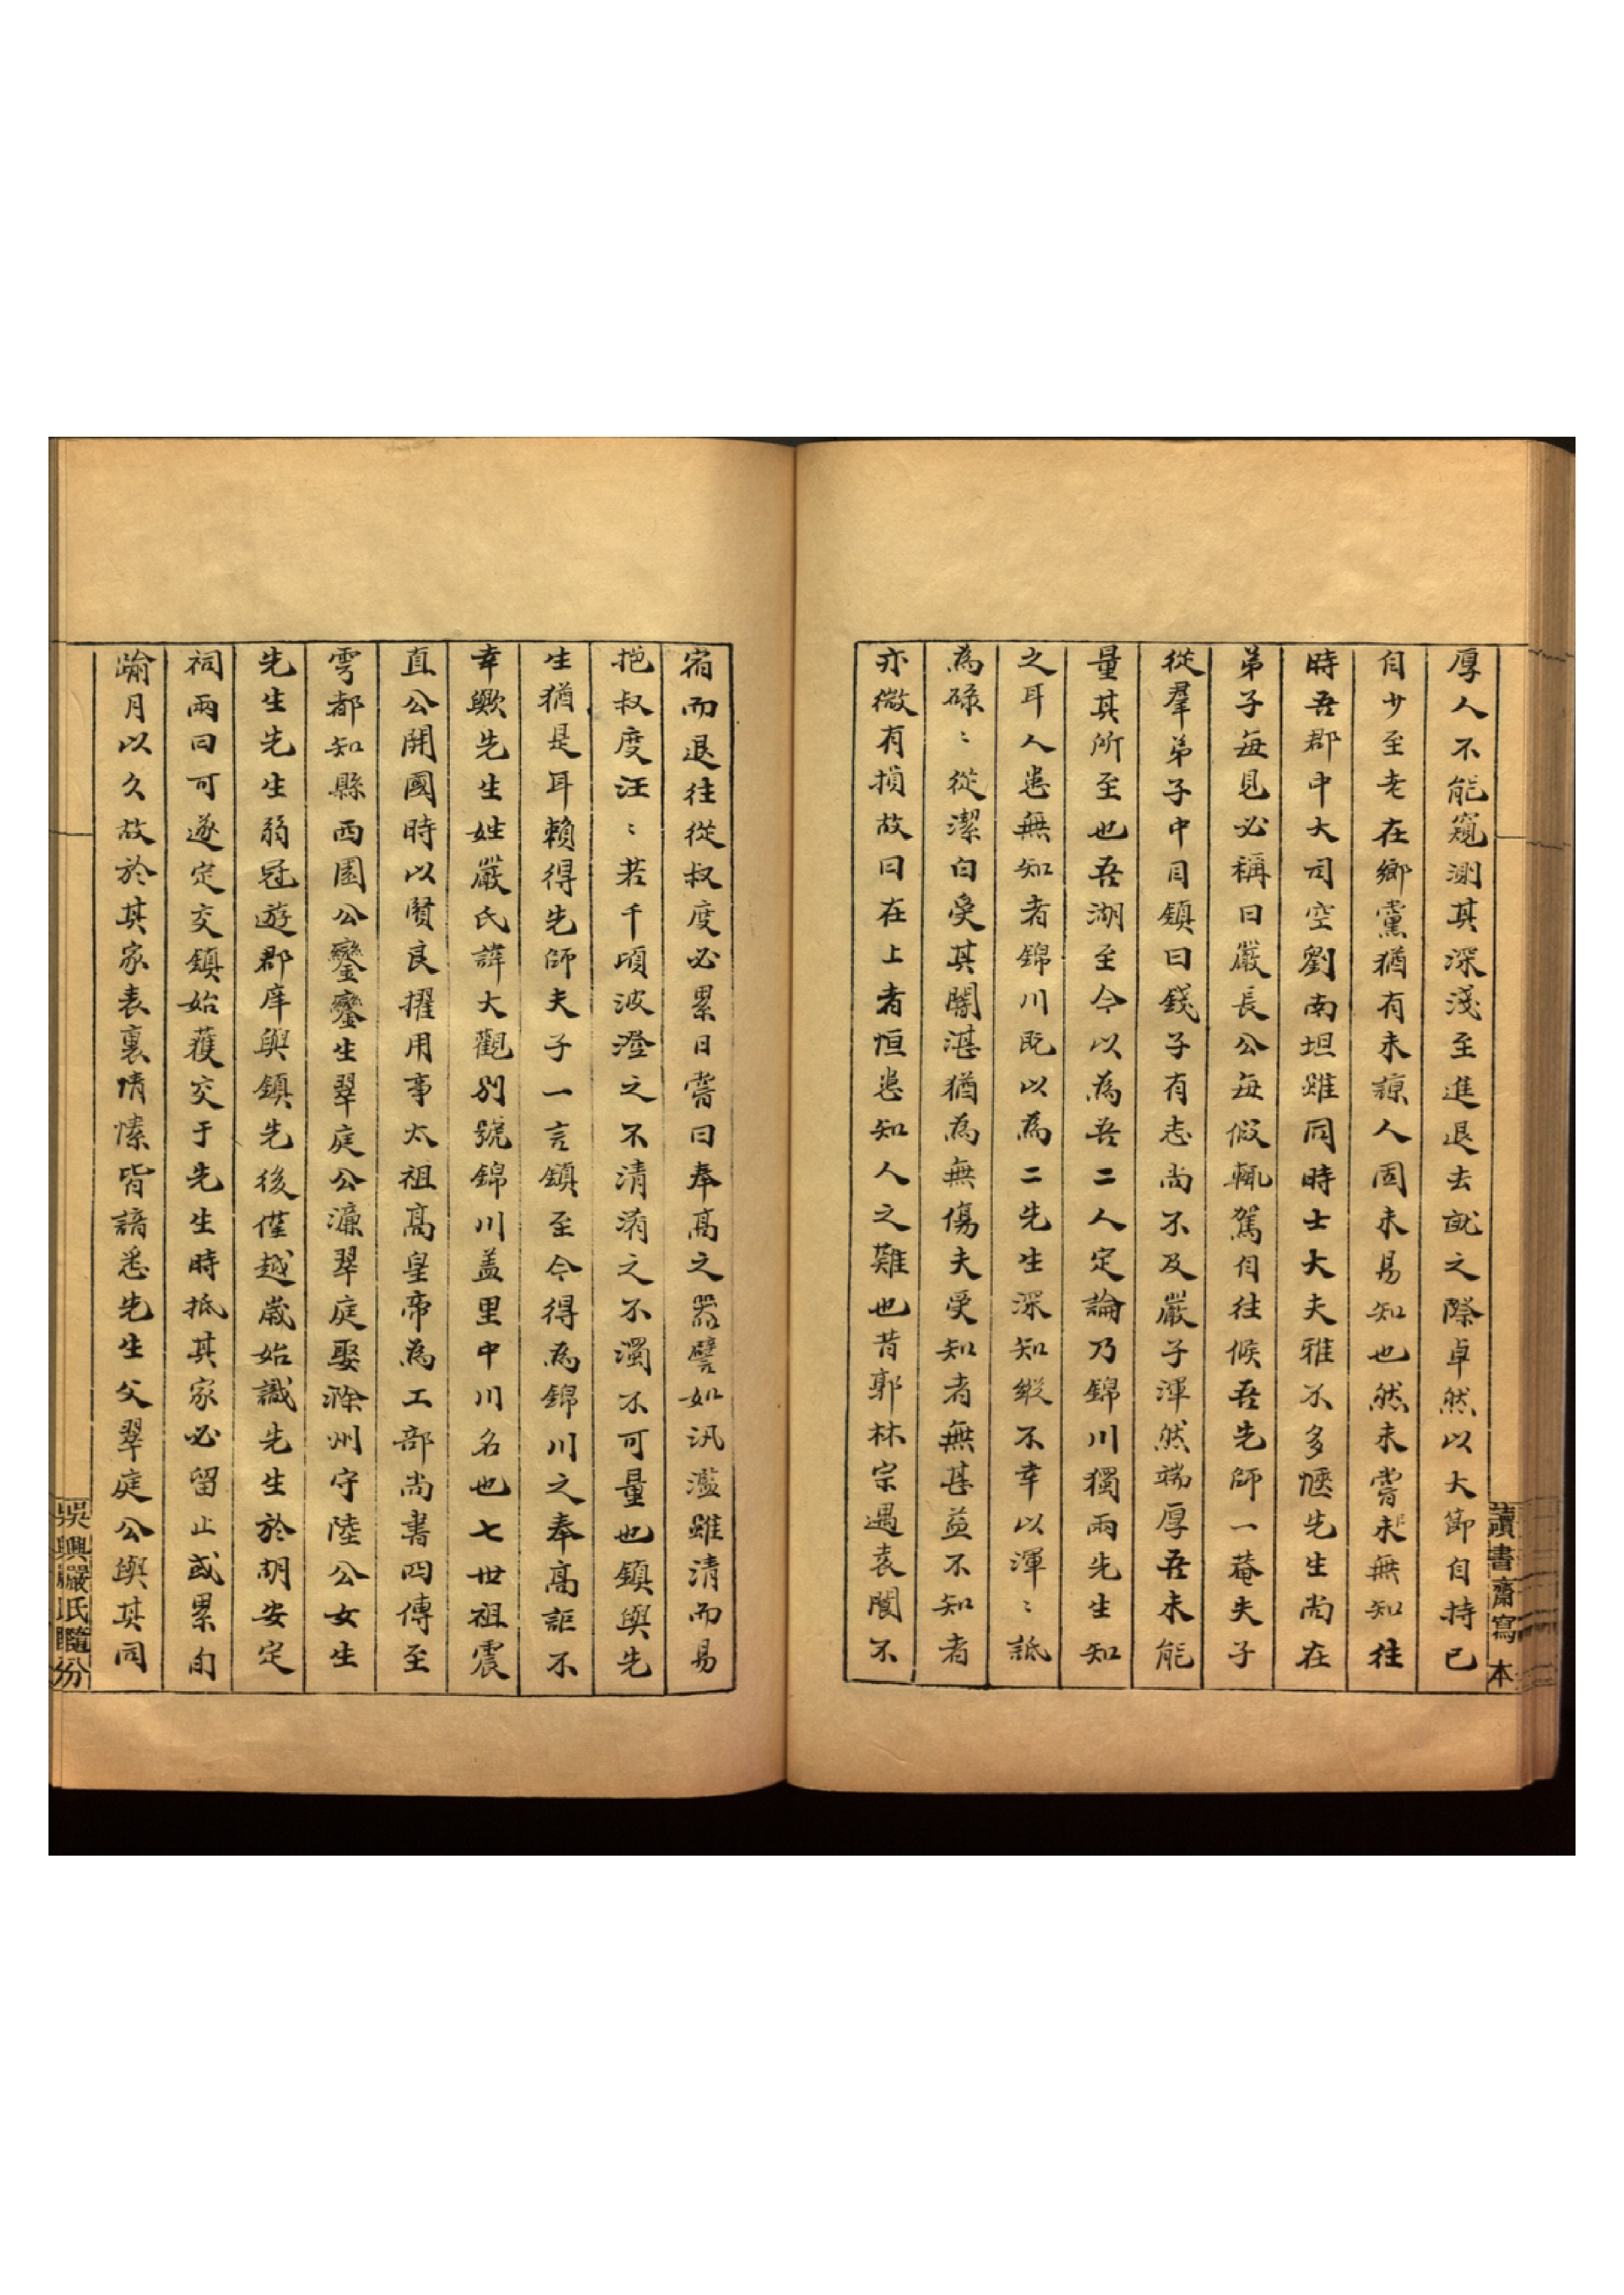 厚人不能窺測其深淺至進退去就之際卓然以大節自持已
自少至老在鄉黨猶有未諒人固未易知也然未嘗未無知往
時吾郡中大司空劉南坦雖同時士大夫雅不多愜先生尚在
弟子每見必稱曰嚴長公每假輒駕自往候吾先師一菴夫子
從羣弟子中目鎮曰錢子有志尚不及嚴子渾然端厚吾未能
量其所至也吾湖至今以為吾二人定論乃錦川獨兩先生知
之耳人患無知者錦川既以為二先生深知縱不幸以渾〻詆
為碌〻從潔白受其闇湛猶為無傷夫受知者無甚益不知者
亦微有損故曰在上者恒患知人之難也昔郭林宗遇袁閬不
宿而退往從叔度必累日嘗曰奉高之器譬如汎濫雖清而易
挹叔度汪〻若千頃波澄之不清淆之不濁不可量也鎮與先
生猶是耳賴得先師夫子一言鎮至今得為錦川之奉高詎不
幸歟先生姓嚴氏諱大觀別號錦川盖里中川名也七世祖震
直公開國時以賢良擢用事太祖高皇帝為工部尚書四傳至
雩都知縣西園公鑾鑾生翠庭公濂翠庭娶滁州守陸公女生
先生先生弱冠遊郡庠與鎮先後僅越歲始識先生於胡安定
祠兩曰可遂定交鎮始獲交于先生時抵其家必留止或累旬
踰月以久故於其家表裏情愫皆諳悉先生父翠庭公與其同
讀書齋寫本
吳興嚴氏隨分